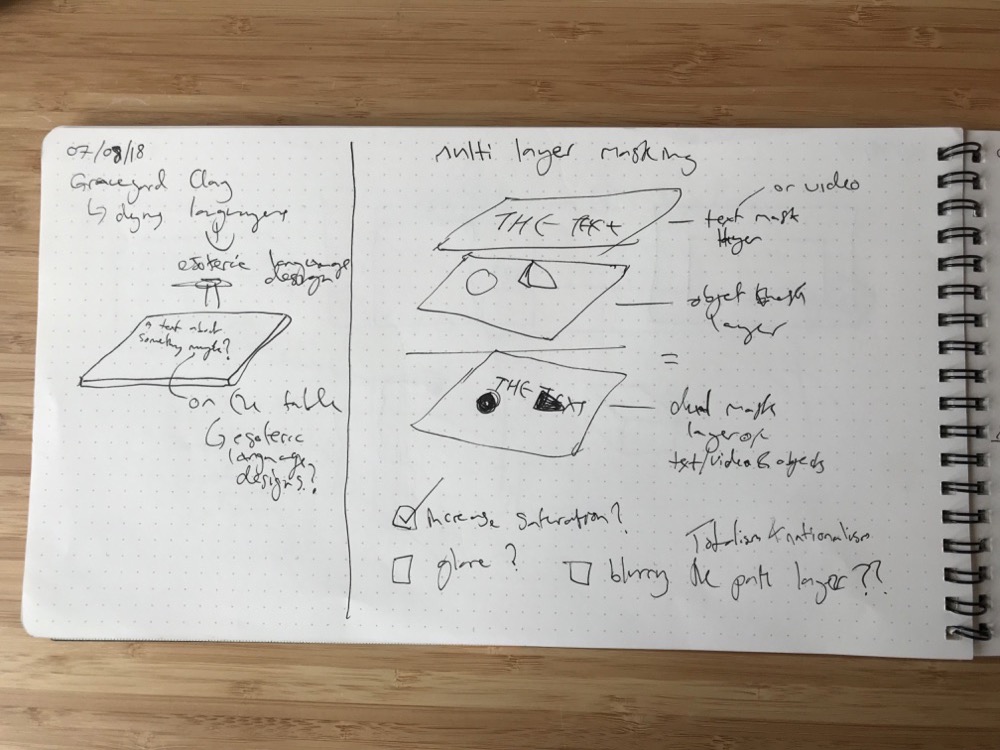 07/08/18
Graveyard Clay
↳ dying languages
esoteric language
design
a text about
something maybe?
on the table
↳ esoteric
language
designs?
Multi layer masking
or video
THE TEXT
text mask
layer
object mask
layer
=
THE TEXT
dual mask
layer of
text/video & objects
increase saturation?
Totalism & nationalism
glare?
blurry the path layer??